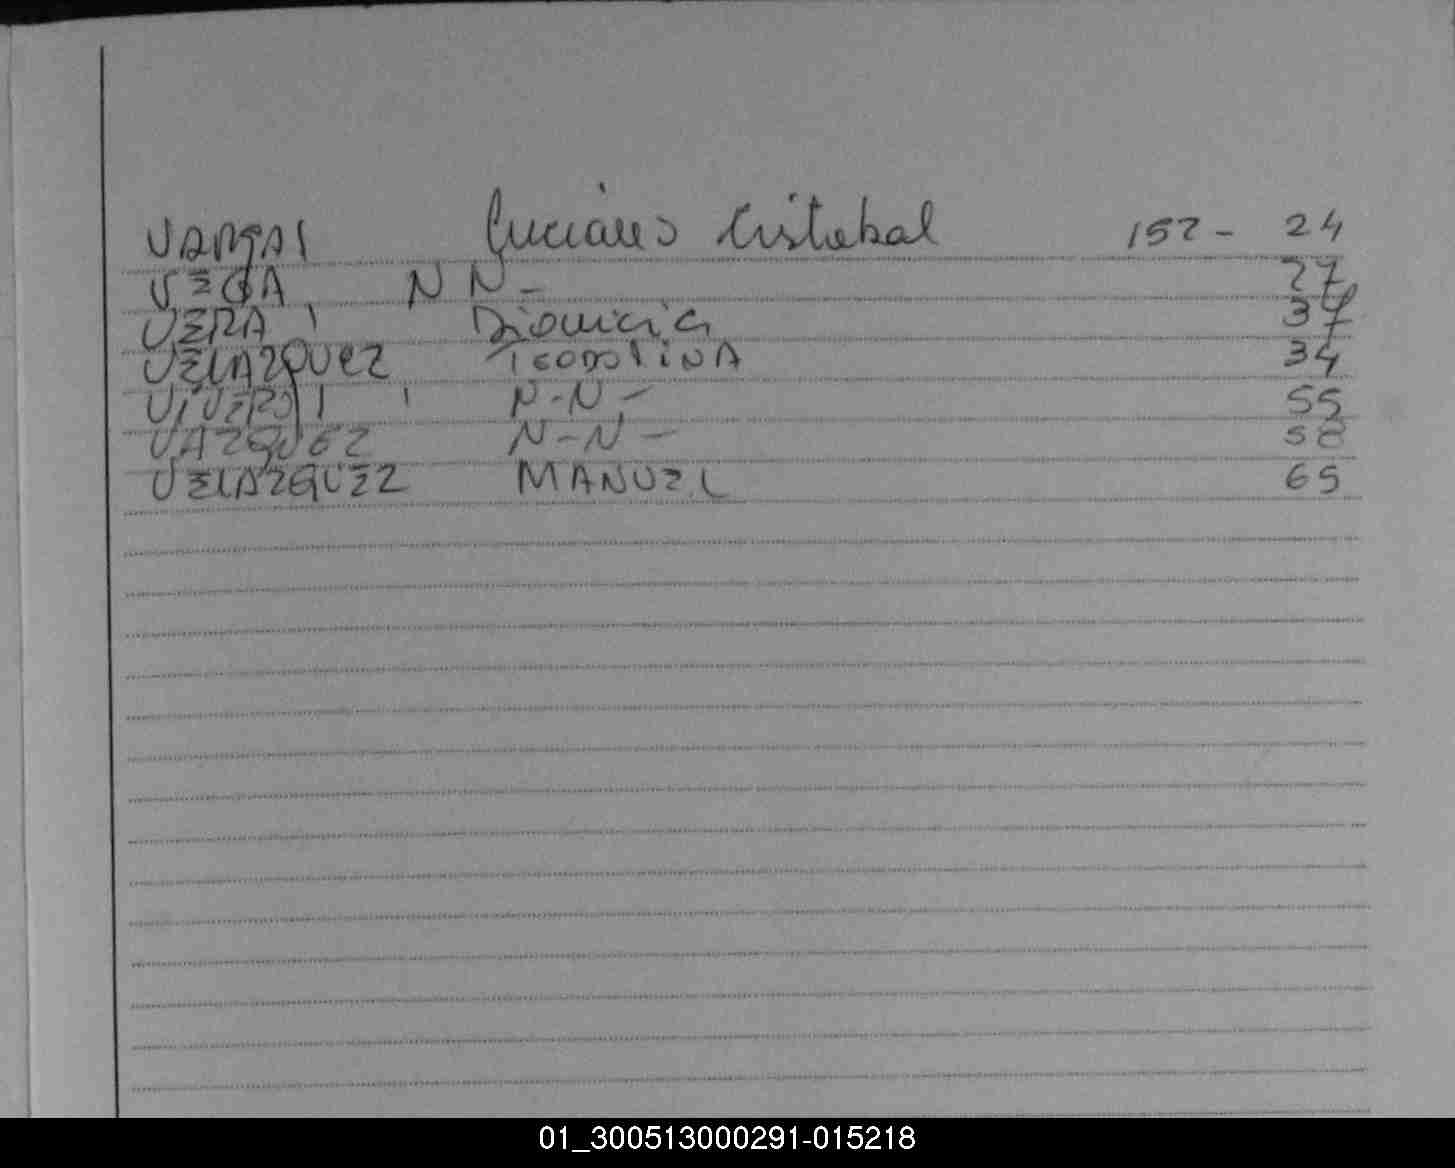 VARGAS Luciano Cristobal 152 - 24
VEGA, N N - 27
VERA, Dionicia 37
VELAZQUEZ TEODOLINA 34
VIVEROS, N-N- 55
VAZQUEZ N-N- 58
VELAZQUEZ MANUEL 65
01_300513000291-015218